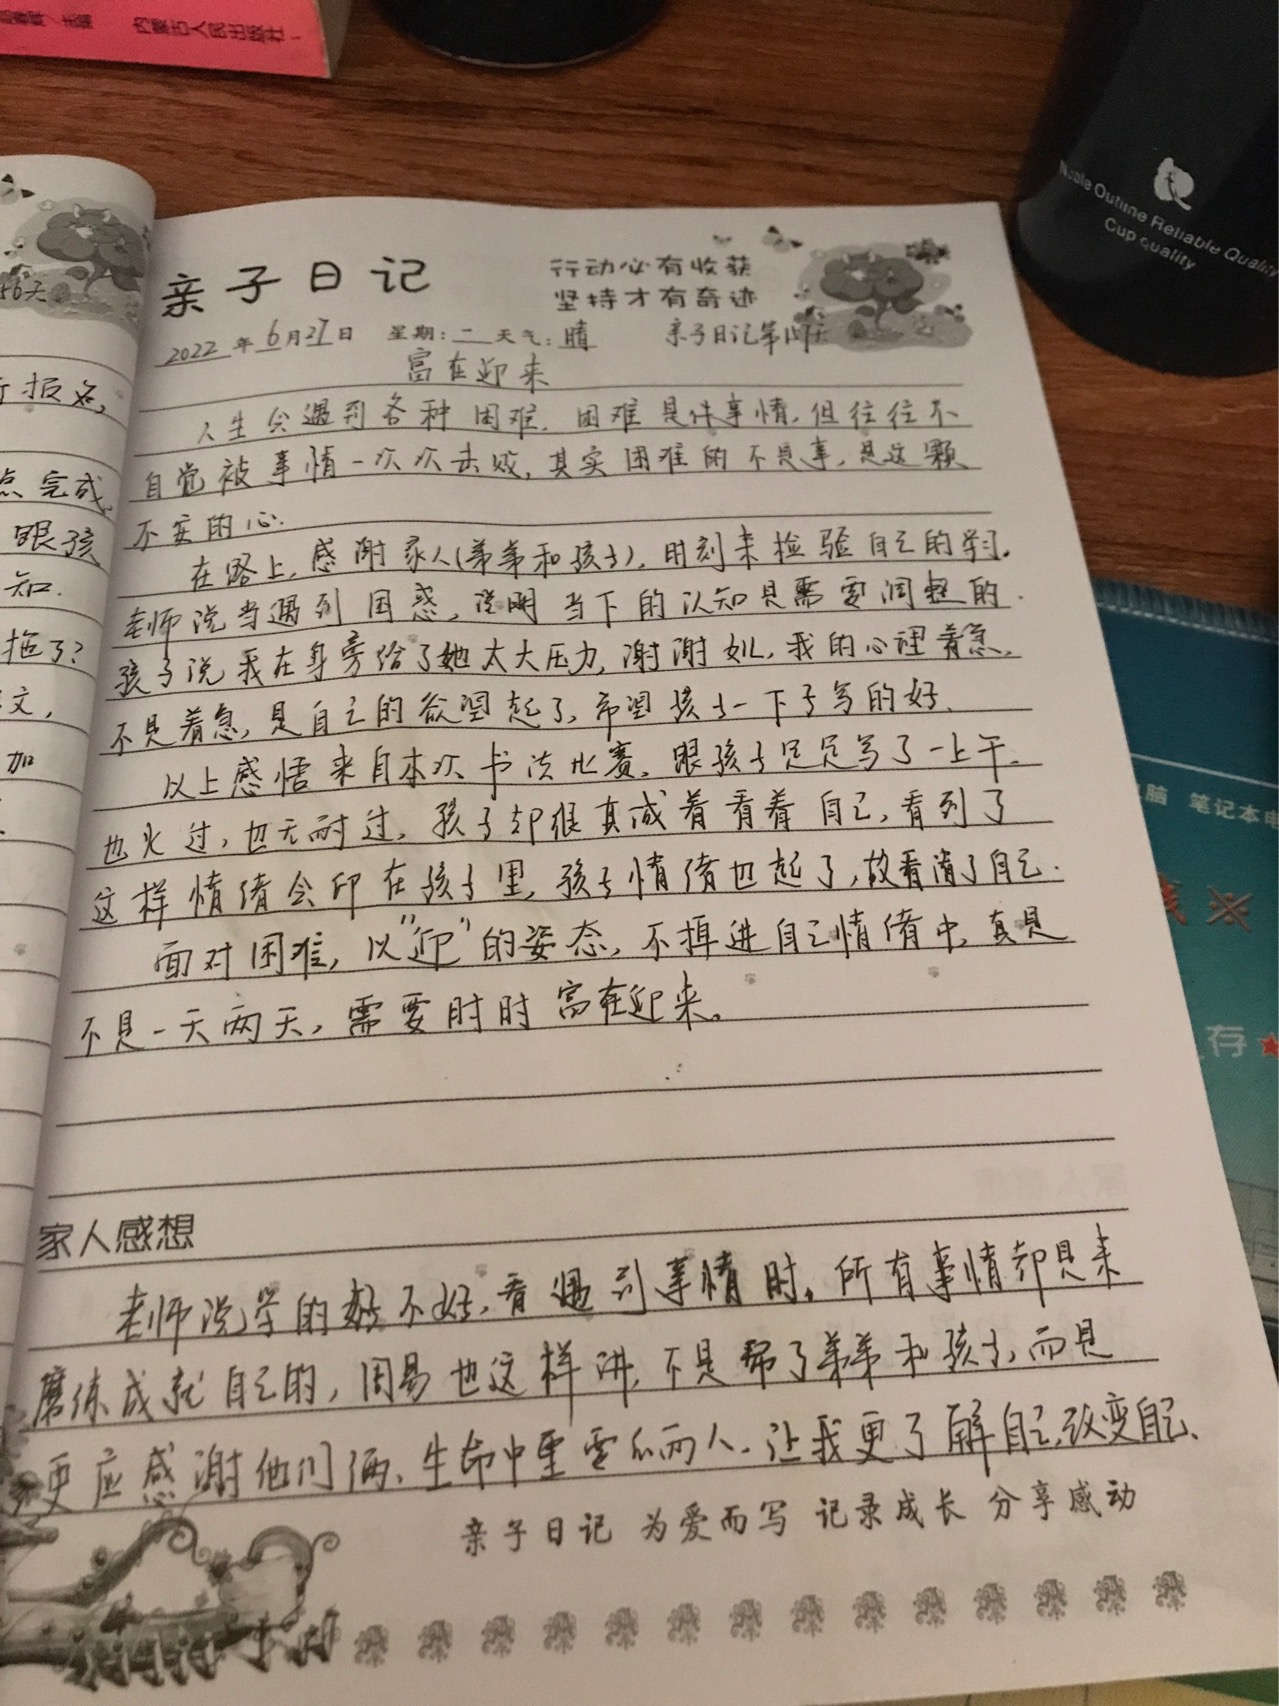 内蒙古人民出版社
Noble Outline Reliable Quality
Cup quality
亲子日记
行动必有收获
坚持才有奇迹
2022年6月27日 星期:二 天气:晴 亲子日记第157天
富在迎来
人生会遇到各种困难,困难是件事情,但往往不
自觉被事情一次次击败,其实困难的不是事,是这颗
不安的心.
在路上,感谢家人(弟弟和孩子),时刻来检验自己的学习.
老师说当遇到困惑,说明当下的认知是需要调整的.
孩子说我在身旁给了她太大压力,谢谢女儿,我的心理着急,
不是着急,是自己的欲望起了,希望孩子一下子写的好.
以上感悟来自本次书法比赛,跟孩子足足写了一上午.
也火过,也无耐过,孩子却很真诚着看着自己,看到了
这样情绪会印在孩子里,孩子情绪也起了,故看清了自己.
面对困难,以"迎"的姿态,不掉进自己情绪中,真是
不是一天两天,需要时时富在迎来。
家人感想
老师说学的好不好,看遇到事情时,所有事情都是来
磨练成就自己的,周易也这样讲,不是帮了弟弟和孩子,而是
更应感谢他们俩,生命中重要的两人.让我更了解自己,改变自己、
亲子日记 为爱而写 记录成长 分享感动
56天
报名,
点完成,
跟孩
知.
拖了?
文,
加
脑 笔记本电
存